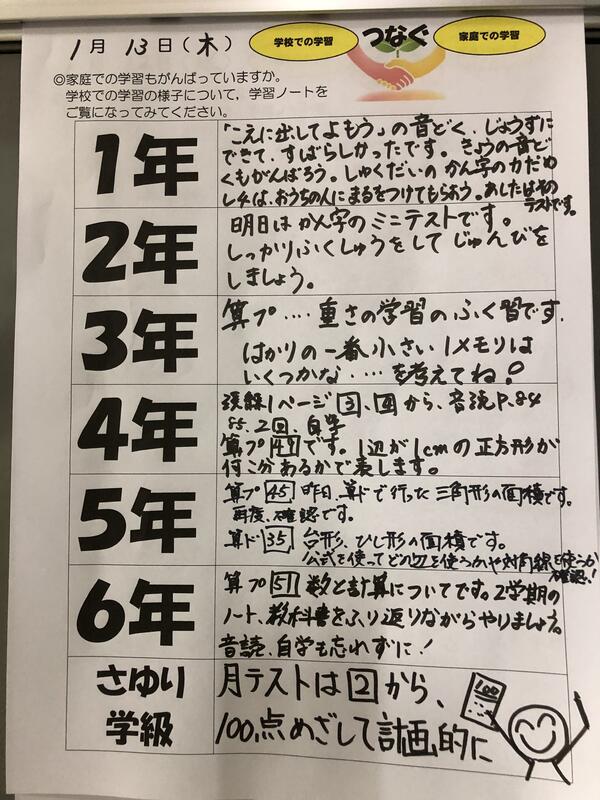 1月 13日(木)
学校での学習
つなぐ
家庭での学習
◎家庭での学習もがんばっていますか。
学校での学習の様子について,学習ノートを
ご覧になってみてください。
1年
「こえに出してよもう」の音どく、じょうずに
できて、すばらしかったです。きょうの音ど
くもがんばろう。しゅくだいのかん字の力だめ
し4は、おうちの人にまるをつけてもらおう。あしたはその
テストです。
2年
明日はかん字のミニテストです。
しっかりふくしゅうをしてじゅんびを
しましょう。
3年
算プ‥‥重さの学習のふく習です.
はかりの一番小さい1メモリは
いくつかな‥‥を考えてね!
4年
漢練1ページ3、4から、音読P.84
85.2回、自学
算プ47です。1辺が1cmの正方形が
何こ分あるかで表します。
5年
算プ45 昨日、算ドで行った三角形の面積です。
再度、確認です。
算ド35 台形、ひし形の面積です。
公式を使ってどの辺を使うかや対角線を使うか
確認!
6年
算プ51数と計算についてです。2学期の
ノート、教科書をふり返りながらやりましょう。
音読、自学も忘れずに!
さゆり
学級
月テストは2から、
100点めざして計画的に
100